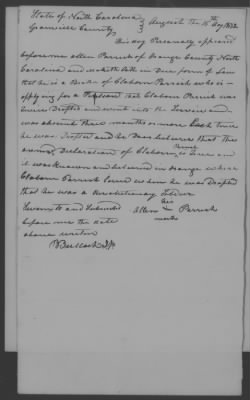 State of North Carolina
Granville County
August the 15th Day 1832
This day Personaly appeard
before me Allen Parrish of Orange County North
Carolina and maketh oath in Due form of Law
that he is a Brother of Claborn Parrish who is
applying for a Pension that Claborn Parrish was
Drafted and went into the Service and
was absent three months or more Each time
he was Drafted and he Does believe that the
Parrish
Declaration of Claborn is true and
it was known and believed in Orange where
Claborn Parrish lived when he was Drafted
that he was a Revolutionary Soldier
his
Sworn to and Subscribed Allen Parrish
before me the date mark
above written